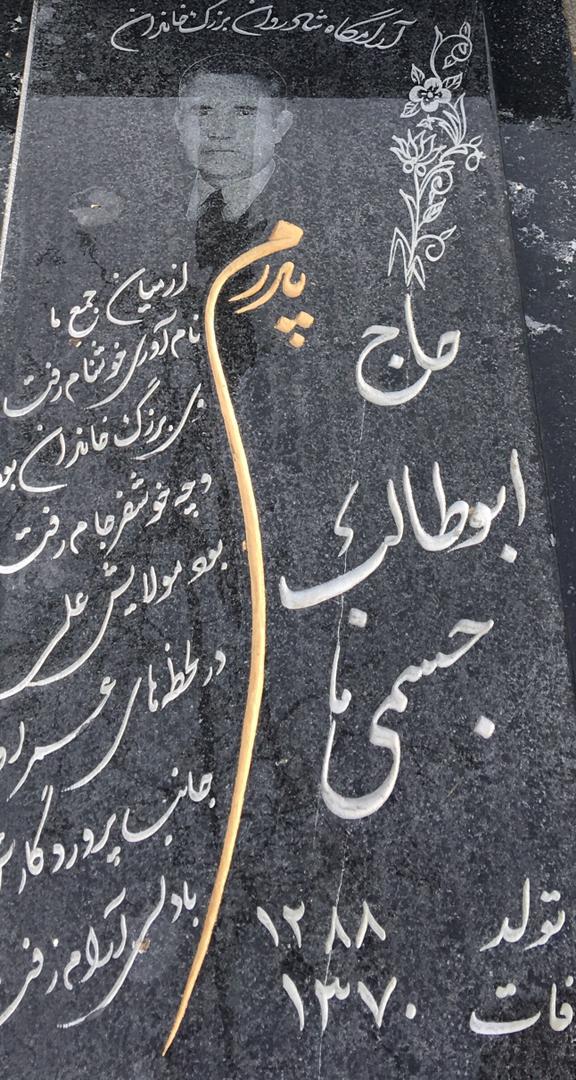 آرامگاه شادروان بزرگ خاندان
پدرم
حاج
ابوطالب
جسمی ما
تولد ۱۲۸۸
فات ۱۳۷۰
از میان جمع ما
نام آوری خوشنام رفت
بزرگ خاندان بو
و چه خوشفرجام رفت
بود مولایش علی
در لحظه های
جانب پروردگار
با دلی آرام رفت